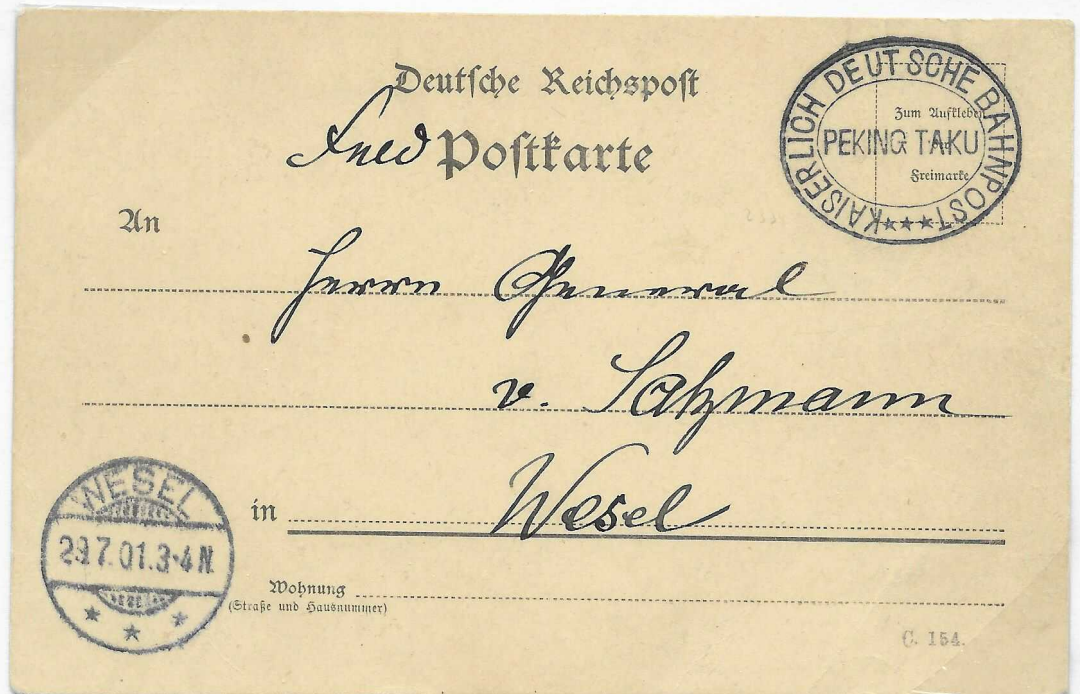 Deutsche Reichspost
Feld Postkarte
KAISERLICH DEUTSCHE BAHNPOST
PEKING TAKU
Zum Aufkleben
Freimarke
An
Herrn General
v. Salzmann
in Wesel
WESEL
29.7.01.3-4N.
Wohnung
(Straße und Hausnummer)
C. 154.